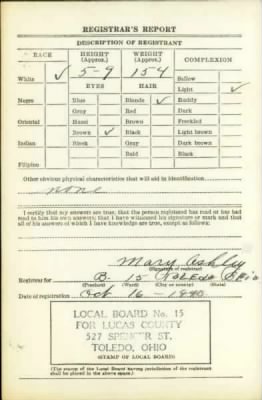 REGISTRAR'S REPORT
DESCRIPTION OF REGISTRANT
RACE HEIGHT (Approx.) WEIGHT (Approx.) COMPLEXION
White ✓ 5-9 154 Sallow
EYES HAIR Light ✓
Negro Blue Blonde ✓ Ruddy
Gray Red Dark
Oriental Hazel Brown Freckled
Brown ✓ Black Light brown
Indian Black Gray Dark brown
Bald Black
Filipino
Other obvious physical characteristics that will aid in identification
none
I certify that my answers are true; that the person registered has read or has had
read to him his own answers; that I have witnessed his signature or mark and that
all of his answers of which I have knowledge are true, except as follows:
Mary Ashley
(Signature of registrar)
Registrar for B- 15 TOLEDO Ohio
(Precinct) (Ward) (City or county) (State)
Date of registration Oct 16 - 1940
LOCAL BOARD No. 15
FOR LUCAS COUNTY
527 SPENCER ST.
TOLEDO, OHIO
(STAMP OF LOCAL BOARD)
(The stamp of the Local Board having jurisdiction of the registrant
shall be placed in the above space.)